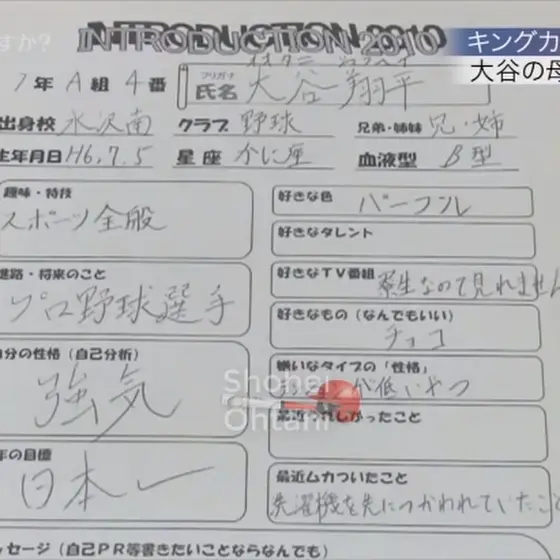 すか?
INTRODUCTION 2010
キングカ
大谷の母
1年 A組 4番
フリガナ
氏名 大谷翔平
出身校 水沢南 クラブ 野球 兄弟・姉妹 兄・姉
生年月日 H6.7.5 星座 かに座 血液型 B型
趣味・特技
スポーツ全般
好きな色 パープル
好きなタレント
進路・将来のこと
プロ野球選手
好きなTV番組 寮生なので見れません
好きなもの(なんでもいい)
チョコ
自分の性格(自己分析)
強気
嫌いなタイプの「性格」
が低いやつ
Shohei
Ohtani
最近うれしかったこと
年の目標
日本一
最近ムカついたこと
洗濯機を先につかわれていたこと
ッセージ(自己PR等書きたいことならなんでも)